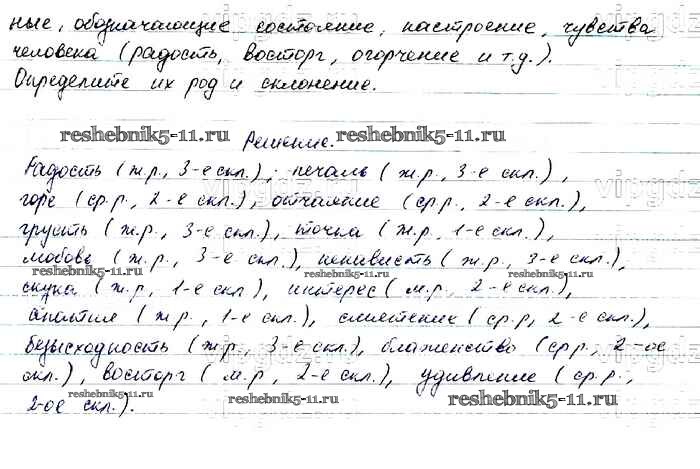 ные, обозначающие состояние, настроение, чувства
человека (радость, восторг, огорчение и т.д.).
Определите их род и склонение.
reshebnik5-11.ru
Решение.
reshebnik5-11.ru
Радость (ж.р., 3-е скл.), печаль (ж.р., 3-е скл.),
vipgdz.ru
горе (ср.р., 2-е скл.), отчаяние (ср.р., 2-е скл.),
грусть (ж.р., 3-е скл.), тоска (ж.р., 1-е скл.),
любовь (ж.р., 3-е скл.), ненависть (ж.р., 3-е скл.),
reshebnik5-11.ru
reshebnik5-11.ru
reshebnik5-11.ru
скука (ж.р., 1-е скл.), интерес (м.р., 2-е скл.),
апатия (ж.р., 1-е скл.), смятение (ср.р, 2-е скл.),
безысходность (ж.р., 3-е скл.), блаженство (ср.р., 2-ое
скл.), восторг (м.р., 2-е скл.), удивление (ср.р.,
2-ое скл.).
reshebnik5-11.ru
reshebnik5-11.ru